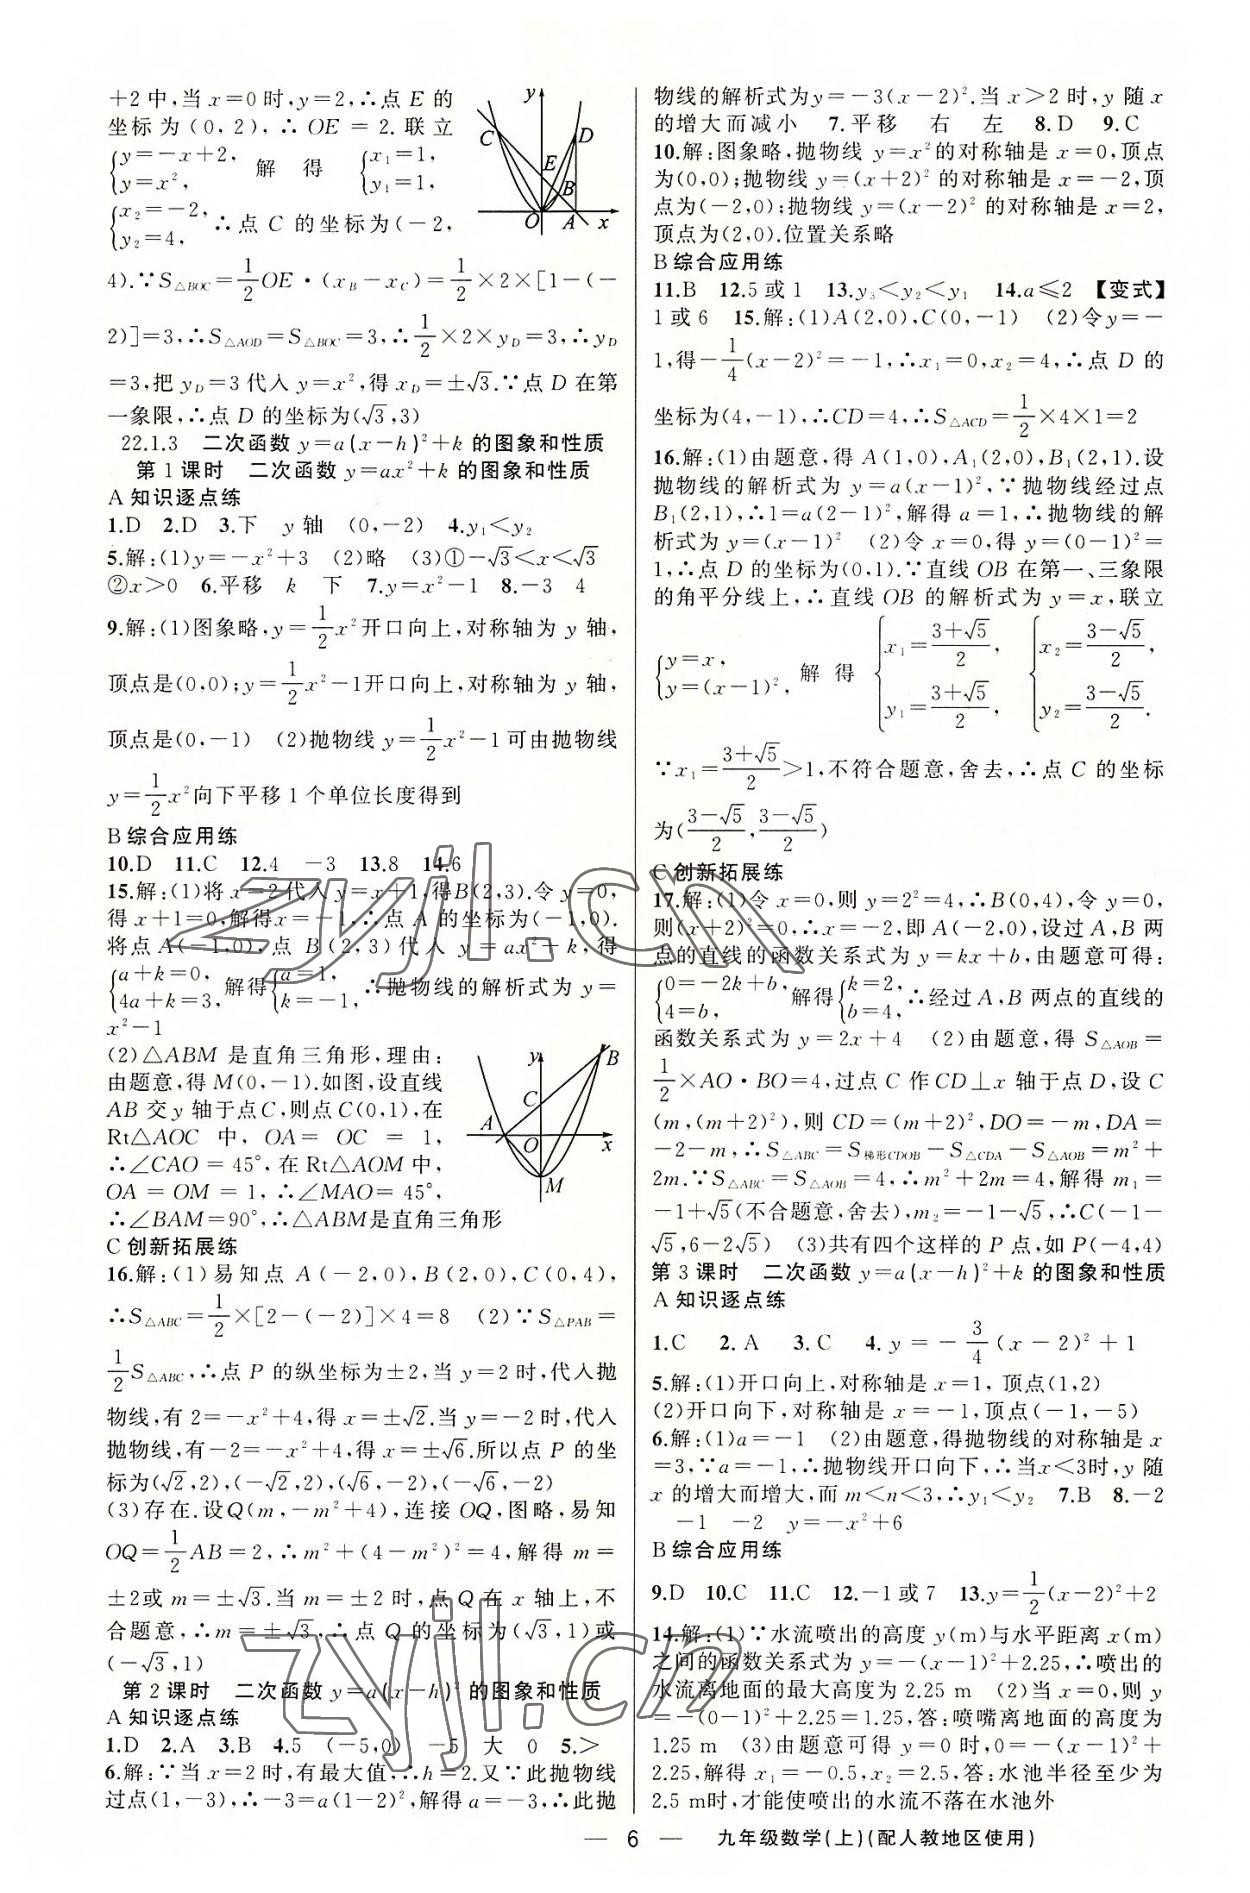 +2中,当 x=0时,y=2,∴点 E 的
坐标为(0,2),∴OE=2.联立
{y=-x+2, y=x², 解得 {x₁=1, y₁=1,
{x₂=-2, y₂=4, ∴点 C 的坐标为(-2,
4).∵S△BOC=1/2OE·(x_B-x_C)=1/2×2×[1-(-
2)]=3,∴S△AOD=S△BOC=3,∴1/2×2×y_D=3,∴y_D
=3,把 y_D=3代入 y=x²,得 x_D=±√3.∵点 D 在第
一象限,∴点 D 的坐标为(√3,3)
y C D E B O A x
22.1.3 二次函数 y=a(x-h)²+k 的图象和性质
第1课时 二次函数 y=ax²+k 的图象和性质
A 知识逐点练
1.D 2.D 3.下 y轴 (0,-2) 4.y₁<y₂
5.解:(1)y=-x²+3 (2)略 (3)①-√3<x<√3
②x>0 6.平移 k 下 7.y=x²-1 8.-3 4
9.解:(1)图象略,y=1/2x²开口向上,对称轴为 y 轴,
顶点是(0,0);y=1/2x²-1开口向上,对称轴为 y 轴,
顶点是(0,-1) (2)抛物线 y=1/2x²-1可由抛物线
y=1/2x²向下平移1个单位长度得到
B 综合应用练
10.D 11.C 12.4 -3 13.8 14.6
15.解:(1)将 x=2代入 y=x+1,得B(2,3).令 y=0,
得 x+1=0,解得x=-1,∴点 A 的坐标为(-1,0).
将点A(-1,0),点 B(2,3)代入 y=ax²+k,得
{a+k=0, 4a+k=3, 解得{a=1, k=-1, ∴抛物线的解析式为 y=
x²-1
(2)△ABM 是直角三角形,理由:
由题意,得 M(0,-1).如图,设直线
AB 交 y 轴于点C,则点C(0,1),在
Rt△AOC 中,OA=OC=1,
∴∠CAO=45°,在Rt△AOM中,
OA=OM=1,∴∠MAO=45°,
∴∠BAM=90°,∴△ABM是直角三角形
y B C A O x M
C 创新拓展练
16.解:(1)易知点 A(-2,0),B(2,0),C(0,4),
∴S△ABC=1/2×[2-(-2)]×4=8 (2)∵S△PAB=
1/2S△ABC,∴点 P 的纵坐标为±2,当 y=2时,代入抛
物线,有 2=-x²+4,得 x=±√2.当 y=-2时,代入
抛物线,有-2=-x²+4,得 x=±√6.所以点 P 的坐
标为(√2,2),(-√2,2),(√6,-2),(-√6,-2)
(3)存在.设Q(m,-m²+4),连接 OQ,图略,易知
OQ=1/2AB=2,∴m²+(4-m²)²=4,解得 m=
±2或 m=±√3.当 m=±2时,点 Q 在 x 轴上,不
合题意,∴m=±√3,∴点 Q 的坐标为(√3,1)或
(-√3,1)
第2课时 二次函数 y=a(x-h)² 的图象和性质
A 知识逐点练
1.D 2.A 3.B 4.5 (-5,0) -5 大 0 5.>
6.解:∵当 x=2时,有最大值,∴h=2.又∵此抛物线
过点(1,-3),∴-3=a(1-2)²,解得 a=-3,∴此抛
物线的解析式为y=-3(x-2)².当 x>2时,y 随 x
的增大而减小 7.平移 右 左 8.D 9.C
10.解:图象略,抛物线 y=x²的对称轴是 x=0,顶点
为(0,0);抛物线 y=(x+2)² 的对称轴是 x=-2,顶
点为(-2,0);抛物线 y=(x-2)² 的对称轴是 x=2,
顶点为(2,0).位置关系略
B 综合应用练
11.B 12.5或1 13.y₃<y₂<y₁ 14.a≤2 【变式】
1或6 15.解:(1)A(2,0),C(0,-1) (2)令y=-
1,得-1/4(x-2)²=-1,∴x₁=0,x₂=4,∴点 D 的
坐标为(4,-1),∴CD=4,∴S△ACD=1/2×4×1=2
16.解:(1)由题意,得 A(1,0),A₁(2,0),B₁(2,1).设
抛物线的解析式为 y=a(x-1)²,∵抛物线经过点
B₁(2,1),∴1=a(2-1)²,解得 a=1,∴抛物线的解
析式为 y=(x-1)² (2)令 x=0,得 y=(0-1)²=
1,∴点 D 的坐标为(0,1).∵直线 OB 在第一、三象限
的角平分线上,∴直线 OB 的解析式为 y=x,联立
{y=x, y=(x-1)², 解得 {x₁=(3+√5)/2, y₁=(3+√5)/2, {x₂=(3-√5)/2, y₂=(3-√5)/2.
∵x₁=(3+√5)/2>1,不符合题意,舍去,∴点 C 的坐标
为((3-√5)/2,(3-√5)/2)
C 创新拓展练
17.解:(1)令 x=0,则 y=2²=4,∴B(0,4),令 y=0,
则(x+2)²=0,∴x=-2,即 A(-2,0),设过 A,B 两
点的直线的函数关系式为 y=kx+b,由题意可得:
{0=-2k+b, 4=b, 解得{k=2, b=4, ∴经过 A,B 两点的直线的
函数关系式为 y=2x+4 (2)由题意,得 S△AOB=
1/2×AO·BO=4,过点 C 作 CD⊥x 轴于点 D,设 C
(m,(m+2)²),则 CD=(m+2)²,DO=-m,DA=
-2-m,∴S△ABC=S梯形CDOB-S△CDA-S△AOB=m²+
2m.∵S△ABC=S△AOB=4,∴m²+2m=4,解得 m₁=
-1+√5(不合题意,舍去),m₂=-1-√5,∴C(-1-
√5,6-2√5) (3)共有四个这样的 P 点,如 P(-4,4)
第3课时 二次函数 y=a(x-h)²+k 的图象和性质
A 知识逐点练
1.C 2.A 3.C 4.y=-3/4(x-2)²+1
5.解:(1)开口向上,对称轴是 x=1,顶点(1,2)
(2)开口向下,对称轴是 x=-1,顶点(-1,-5)
6.解:(1)a=-1 (2)由题意,得抛物线的对称轴是 x
=3,∵a=-1,∴抛物线开口向下,∴当x<3时,y 随
x 的增大而增大,而 m<n<3,∴y₁<y₂ 7.B 8.-2
-1 -2 y=-x²+6
B 综合应用练
9.D 10.C 11.C 12.-1或7 13.y=1/2(x-2)²+2
14.解:(1)∵水流喷出的高度 y(m)与水平距离 x(m)
之间的函数关系式为 y=-(x-1)²+2.25,∴喷出的
水流离地面的最大高度为 2.25 m (2)当 x=0,则 y
=-(0-1)²+2.25=1.25,答:喷嘴离地面的高度为
1.25 m (3)由题意可得 y=0时,0=-(x-1)²+
2.25,解得 x₁=-0.5,x₂=2.5,答:水池半径至少为
2.5 m时,才能使喷出的水流不落在水池外
— 6 — 九年级数学(上)(配人教地区使用)
zyjl.cn
zyjl.cn